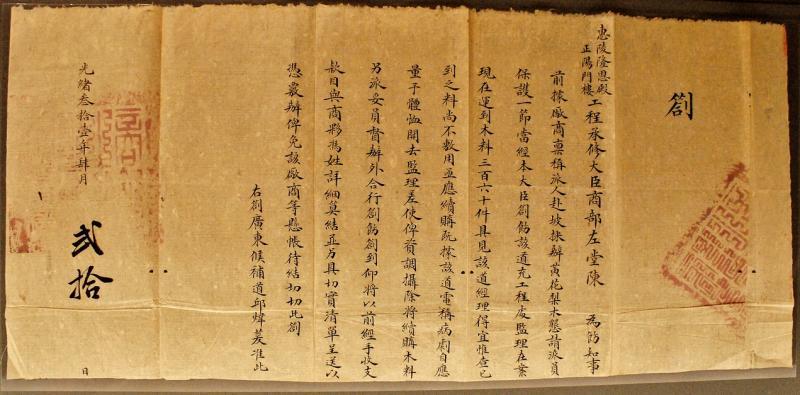 劄
惠陵隆恩殿
正陽門樓
工程承修大臣商部左堂陳　為飭知事
前據廠商稟稱派人赴坡採辦黃花梨木懇請派員
保護一節當經本大臣劄飭該道充工程處監理在案
現在運到木料三百六十件具見該道經理得宜惟查已
到之料尚不敷用並應續購玆據該道電稱病劇自應
量予體恤開去監理差使俾資調攝除將續購木料
另派妥員督辦外合行劄飭劄到仰將以前經手收支
款目與商夥馮姓詳細算結並另具切實清單呈送以
憑覈辦俾免該廠商等懸帳待結切切此劄
右劄廣東候補道邱煒萲准此
光緒叁拾壹年肆月
貳拾
日